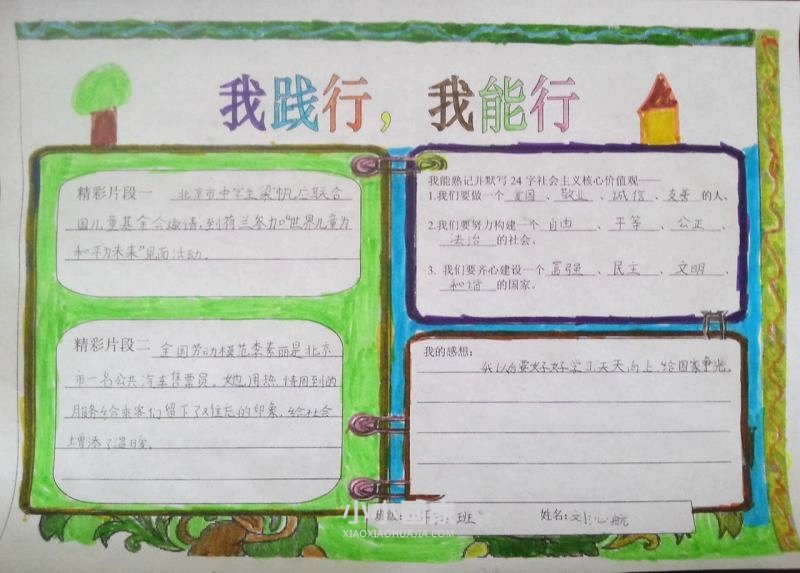 我践行，我能行
精彩片段一 北京市中学生梁帆应联合
国儿童基金会邀请，到荷兰参加“世界儿童为
和平为未来”见面活动。
精彩片段二 全国劳动模范李素丽是北京
市一名公共汽车售票员。她用热情周到的
服务给乘客们留下了难忘的印象，给社会
增添了温暖。
我能熟记并默写 24 字社会主义核心价值观——
1.我们要做一个 爱国 、 敬业 、 诚信 、 友善 的人、
2.我们要努力构建一个 自由 、 平等 、 公正 、
法治 的社会、
3. 我们要齐心建设一个 富强 、 民主 、 文明 、
和谐 的国家。
我的感想：
我以后要好好学习，天天向上，给国家争光。
班级： 班 姓名：刘心航
XIAOXIAOHUAJIA.COM